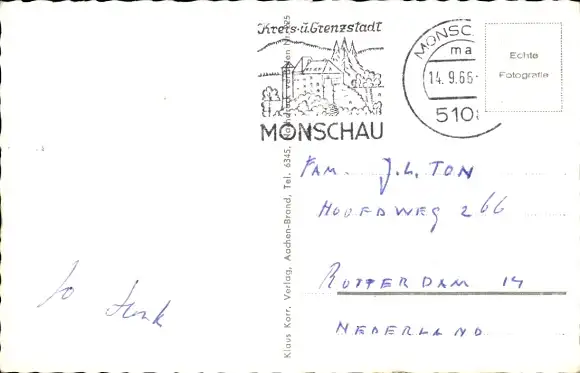 Kreis- ü. Grenzstadt
MONSCHAU
MONSC
ma
14.9.66-
510
Echte
Fotografie
Klaus Korr, Verlag, Aachen-Brand, Tel. 6345,
FAM. J.L. TON
HOOFDWEG 266
ROTTERDAM 14
NEDERLAND
Jo
Henk